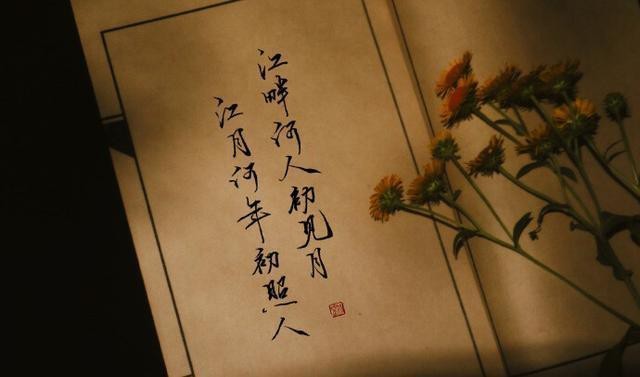 江畔何人初见月
江月何年初照人